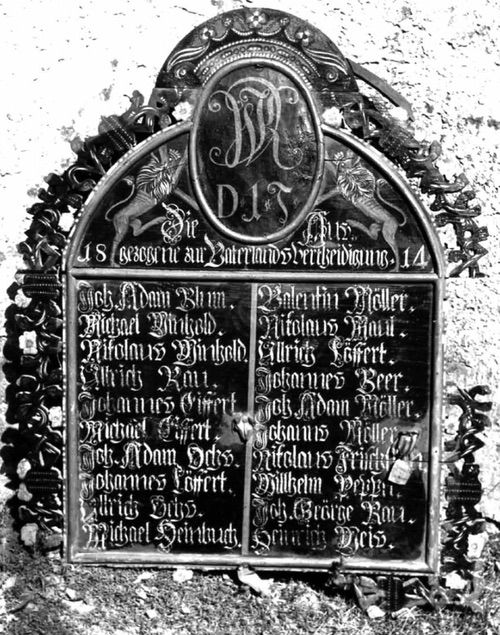 WK
D 1 T
Die Aus
18 gezogene zur Vaterlands Vertheidigung. 14
Joh. Adam Blum.
Michael Winhold.
Nikolaus Winhold.
Ullrich Rau.
Johannes Eiffert.
Michael Eiffert.
Joh. Adam Ochs.
Johannes Löffert.
Ullrich
Michael Heimbuch.
Valentin Möller.
Nikolaus Maul.
Ullrich Löffert.
Johannes Beer.
Joh. Adam Möller.
Johanns Möller
Nikolaus
Willhelm
Joh. George Rau.
Heinrich Weis.